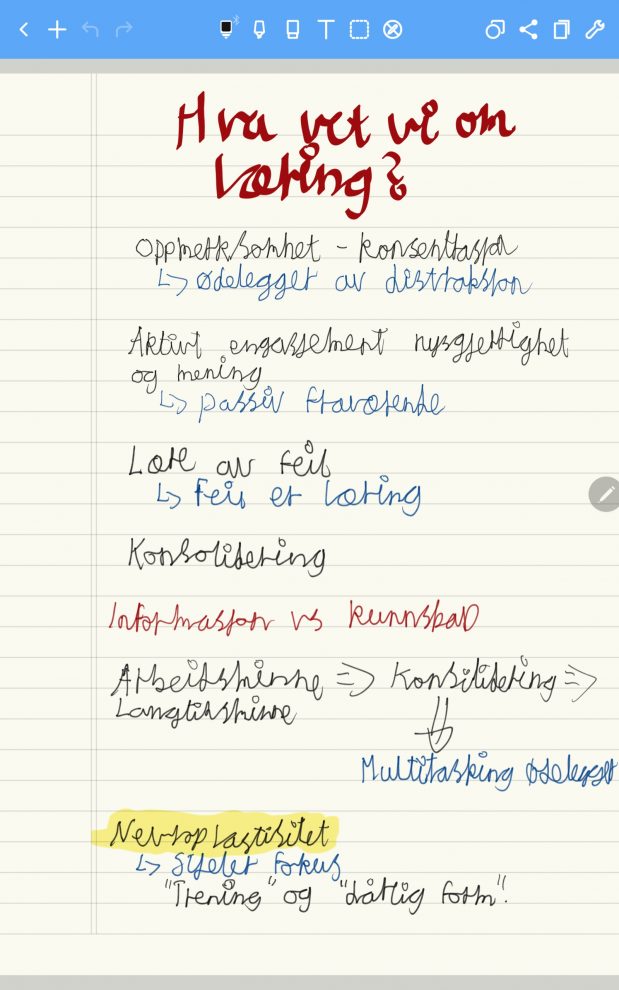 Hva vet vi om
læring?
Oppmerksomhet - konsentrasjon
↳ Ødelegget av distraksjon
Aktivt engasjement nysgjerrighet
og mening
↳ passiv fraværende
Lære av feil
↳ Feil er læring
Konsolidering
Informasjon vs kunnskap
Arbeidsminne => Konsilidering =>
Langtidsminne
⇓
Multitasking ødelegger
Nevroplastisitet
↳ Stjeler fokus
"Trening" og "dårlig form".